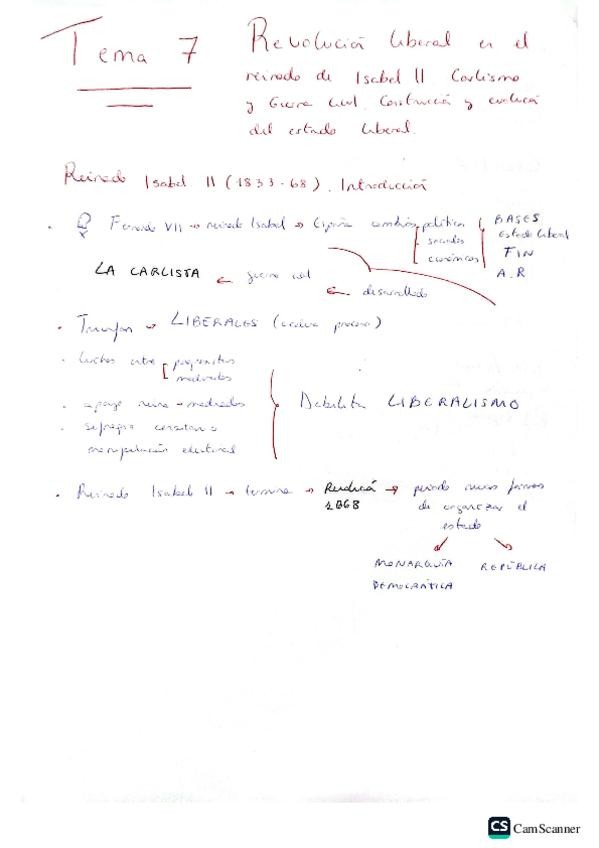 Tema 7
Revolución liberal en el
reinado de Isabel II. Carlismo
y Guerra civil. Construcción y evolución
del estado liberal.
Reinado Isabel II (1833-68). Introducción
Fernando VII → reinado Isabel → cambios políticos
sociales
económicos
BASES
Estado liberal
FIN
A.R
LA CARLISTA ← guerra civil
← desarrollado
Triunfan → LIBERALES (proceso)
luchas entre progresistas
moderados
apoyo reina → moderados
sufragio censitario
manipulación electoral
Debilita LIBERALISMO
Reinado Isabel II → termina → 1868 → periodo nuevas formas
de organizar el
estado
MONARQUÍA
DEMOCRÁTICA
REPÚBLICA
CS CamScanner